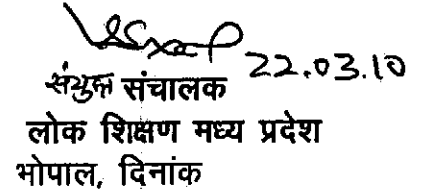 22.03.10
संयुक्त संचालक
लोक शिक्षण मध्य प्रदेश
भोपाल, दिनांक